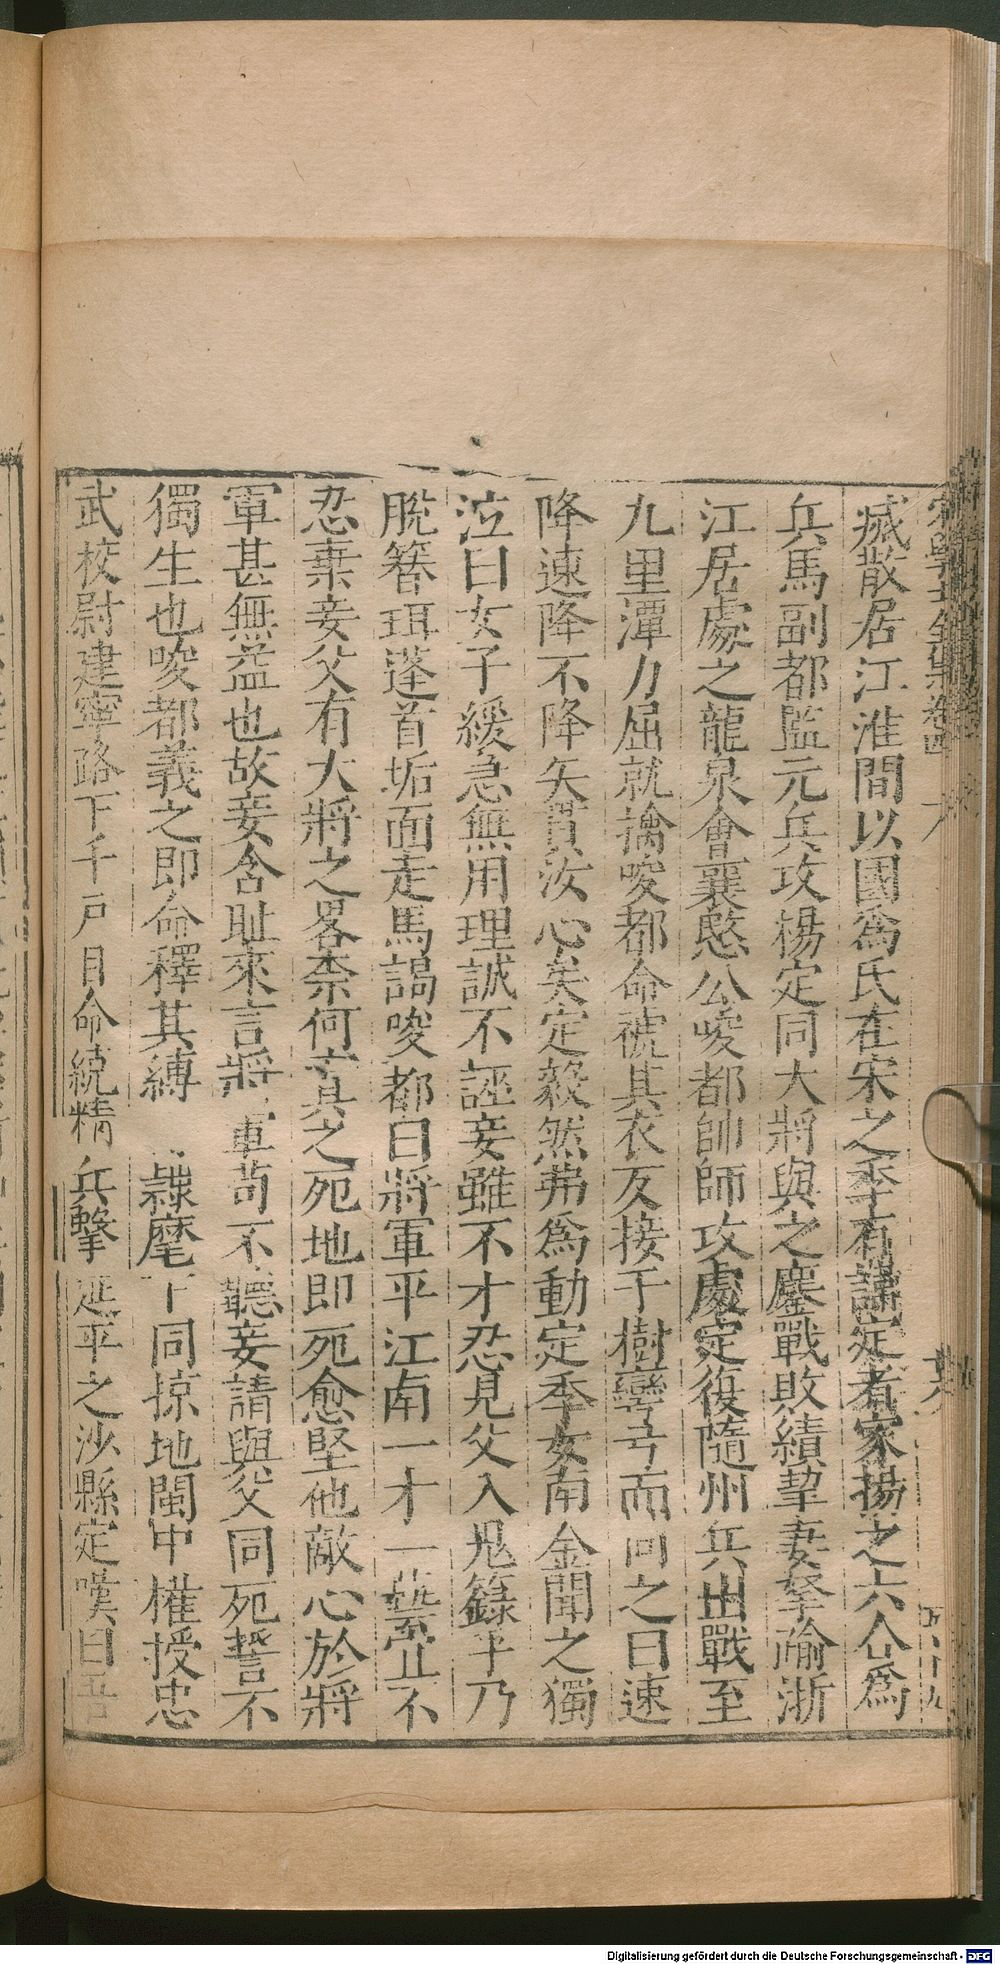 宋學士全集卷四
戚散居江淮間以國為氏在宋之季有諱定者家揚之六合為
兵馬副都監元兵攻楊定同大將與之鏖戰敗績挈妻孥踰浙
江居處之龍泉會襄愍公唆都帥師攻處定復隨州兵出戰至
九里潭力屈就擒唆都命褫其衣反接于樹彎弓而向之曰速
降速降不降矢貫汝心矣定毅然弗為動定季女南金聞之獨
泣曰女子緩急無用理誠不誣妾雖不才忍見父入鬼籙乎乃
脫簪珥蓬首垢面走馬謁唆都曰將軍平江南一才一藝寘不
忍棄妾父有大將之畧柰何之死地即死愈堅他敵心於將
軍甚無益也故妾含耻來言將軍苟不聽妾請與父同死誓不
獨生也唆都義之即命釋其縛隸麾下同掠地閩中權授忠
武校尉建寧路下千戶目命統精兵擊延平之沙縣定嘆曰吾
Digitalisierung gefördert durch die Deutsche Forschungsgemeinschaft - DFG